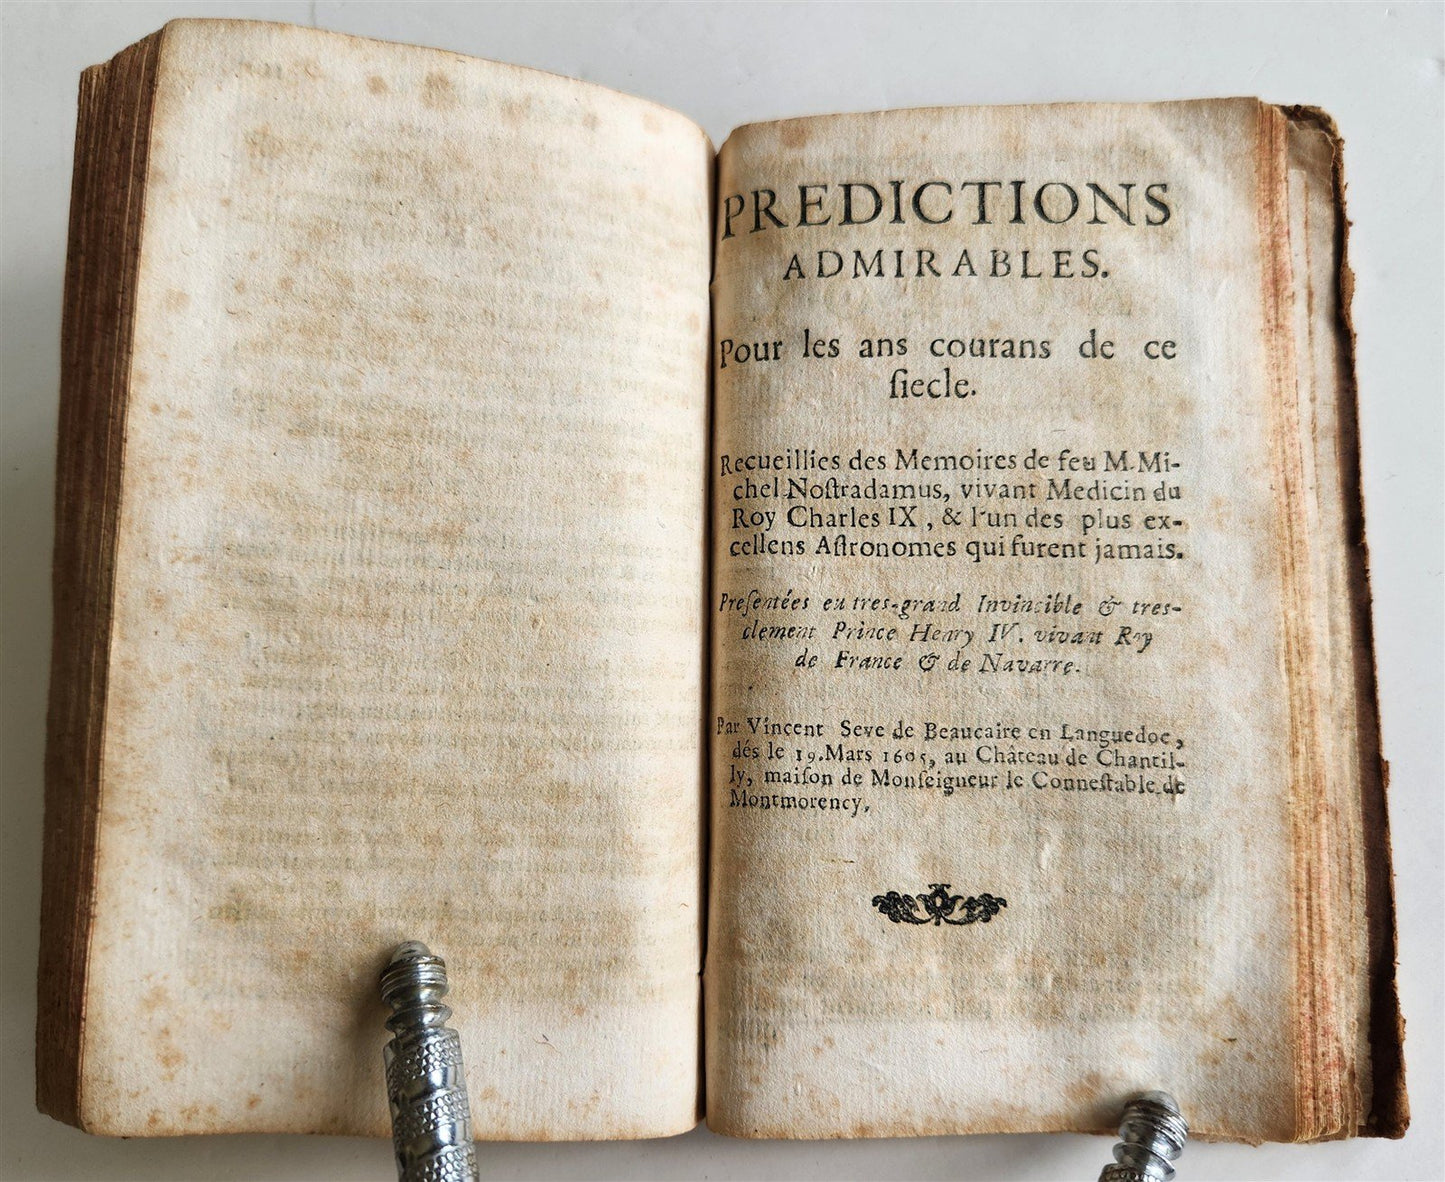 PREDICTIONS
ADMIRABLES.
Pour les ans courans de ce
ſiecle.
Recueillies des Memoires de feu M. Mi-
chel Noſtradamus, vivant Medicin du
Roy Charles IX, & l'un des plus ex-
cellens Aſtronomes qui furent jamais.
Preſentées eu tres-grand Invincible & tres-
clement Prince Henry IV. vivant Roy
de France & de Navarre.
Par Vincent Seve de Beaucaire en Languedoc,
dés le 19. Mars 1605, au Château de Chantil-
ly, maiſon de Monſeigneur le Conneſtable de
Montmorency,